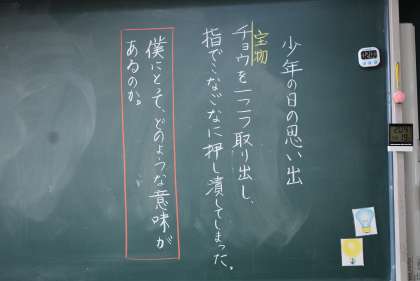 少年の日の思い出
宝物
チョウを一つ一つ取り出し、
指でこなごなに押し潰してしまった。
僕にとって、どのような意味が
あるのか。